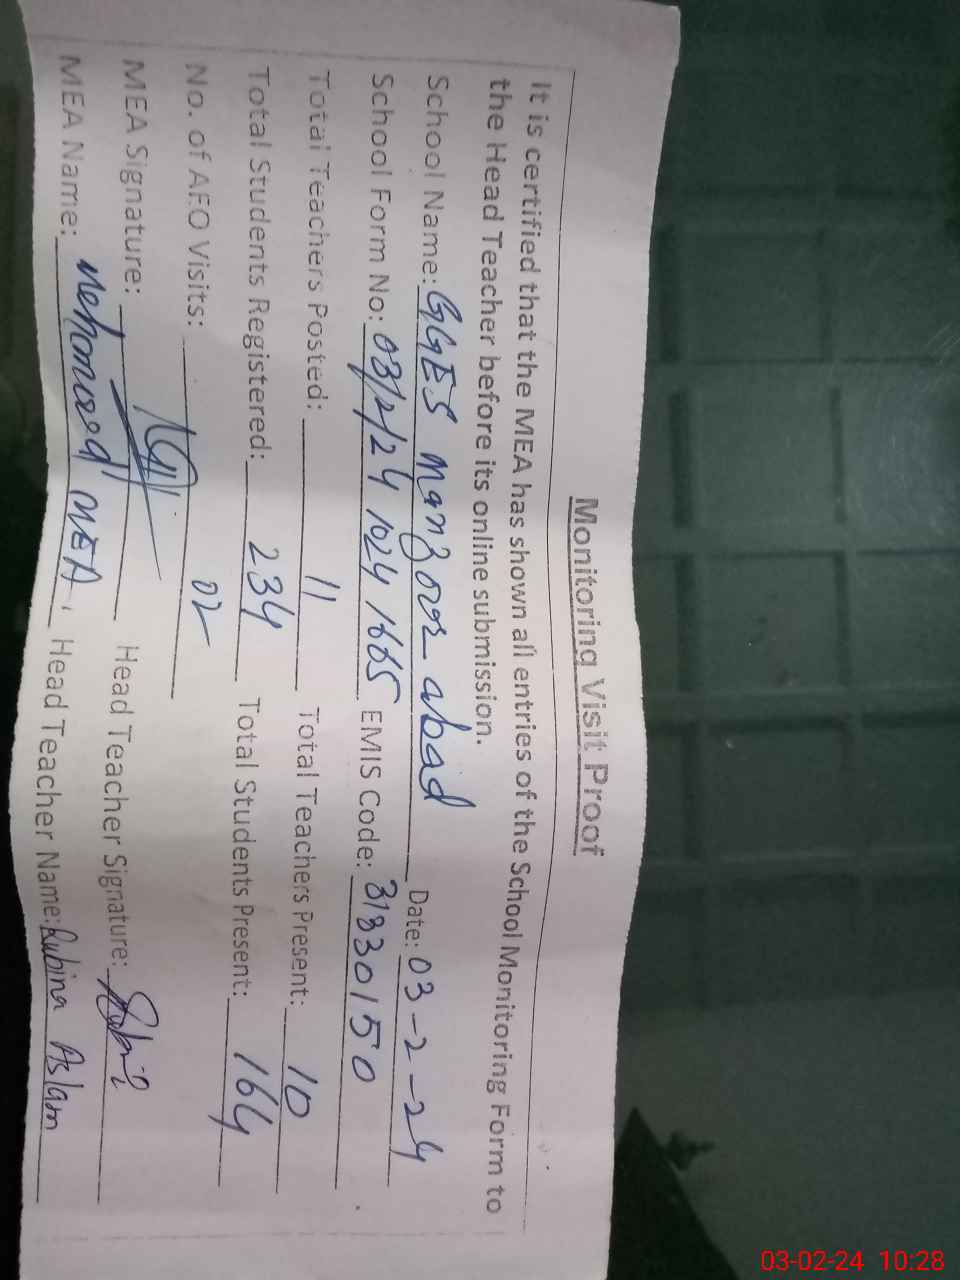 Monitoring Visit Proof
It is certified that the MEA has shown all entries of the School Monitoring Form to
the Head Teacher before its online submission.
School Name: GGES Manzoor abad Date: 03-2-24
School Form No: 03/2/24 1024 1665 EMIS Code: 31830150
Total Teachers Posted: 11 Total Teachers Present: 10
Total Students Registered: 234 Total Students Present: 164
No. of AEO Visits: 02
MEA Signature: Head Teacher Signature:
MEA Name: MEA Head Teacher Name: Rubina Aslam
03-02-24 10:28